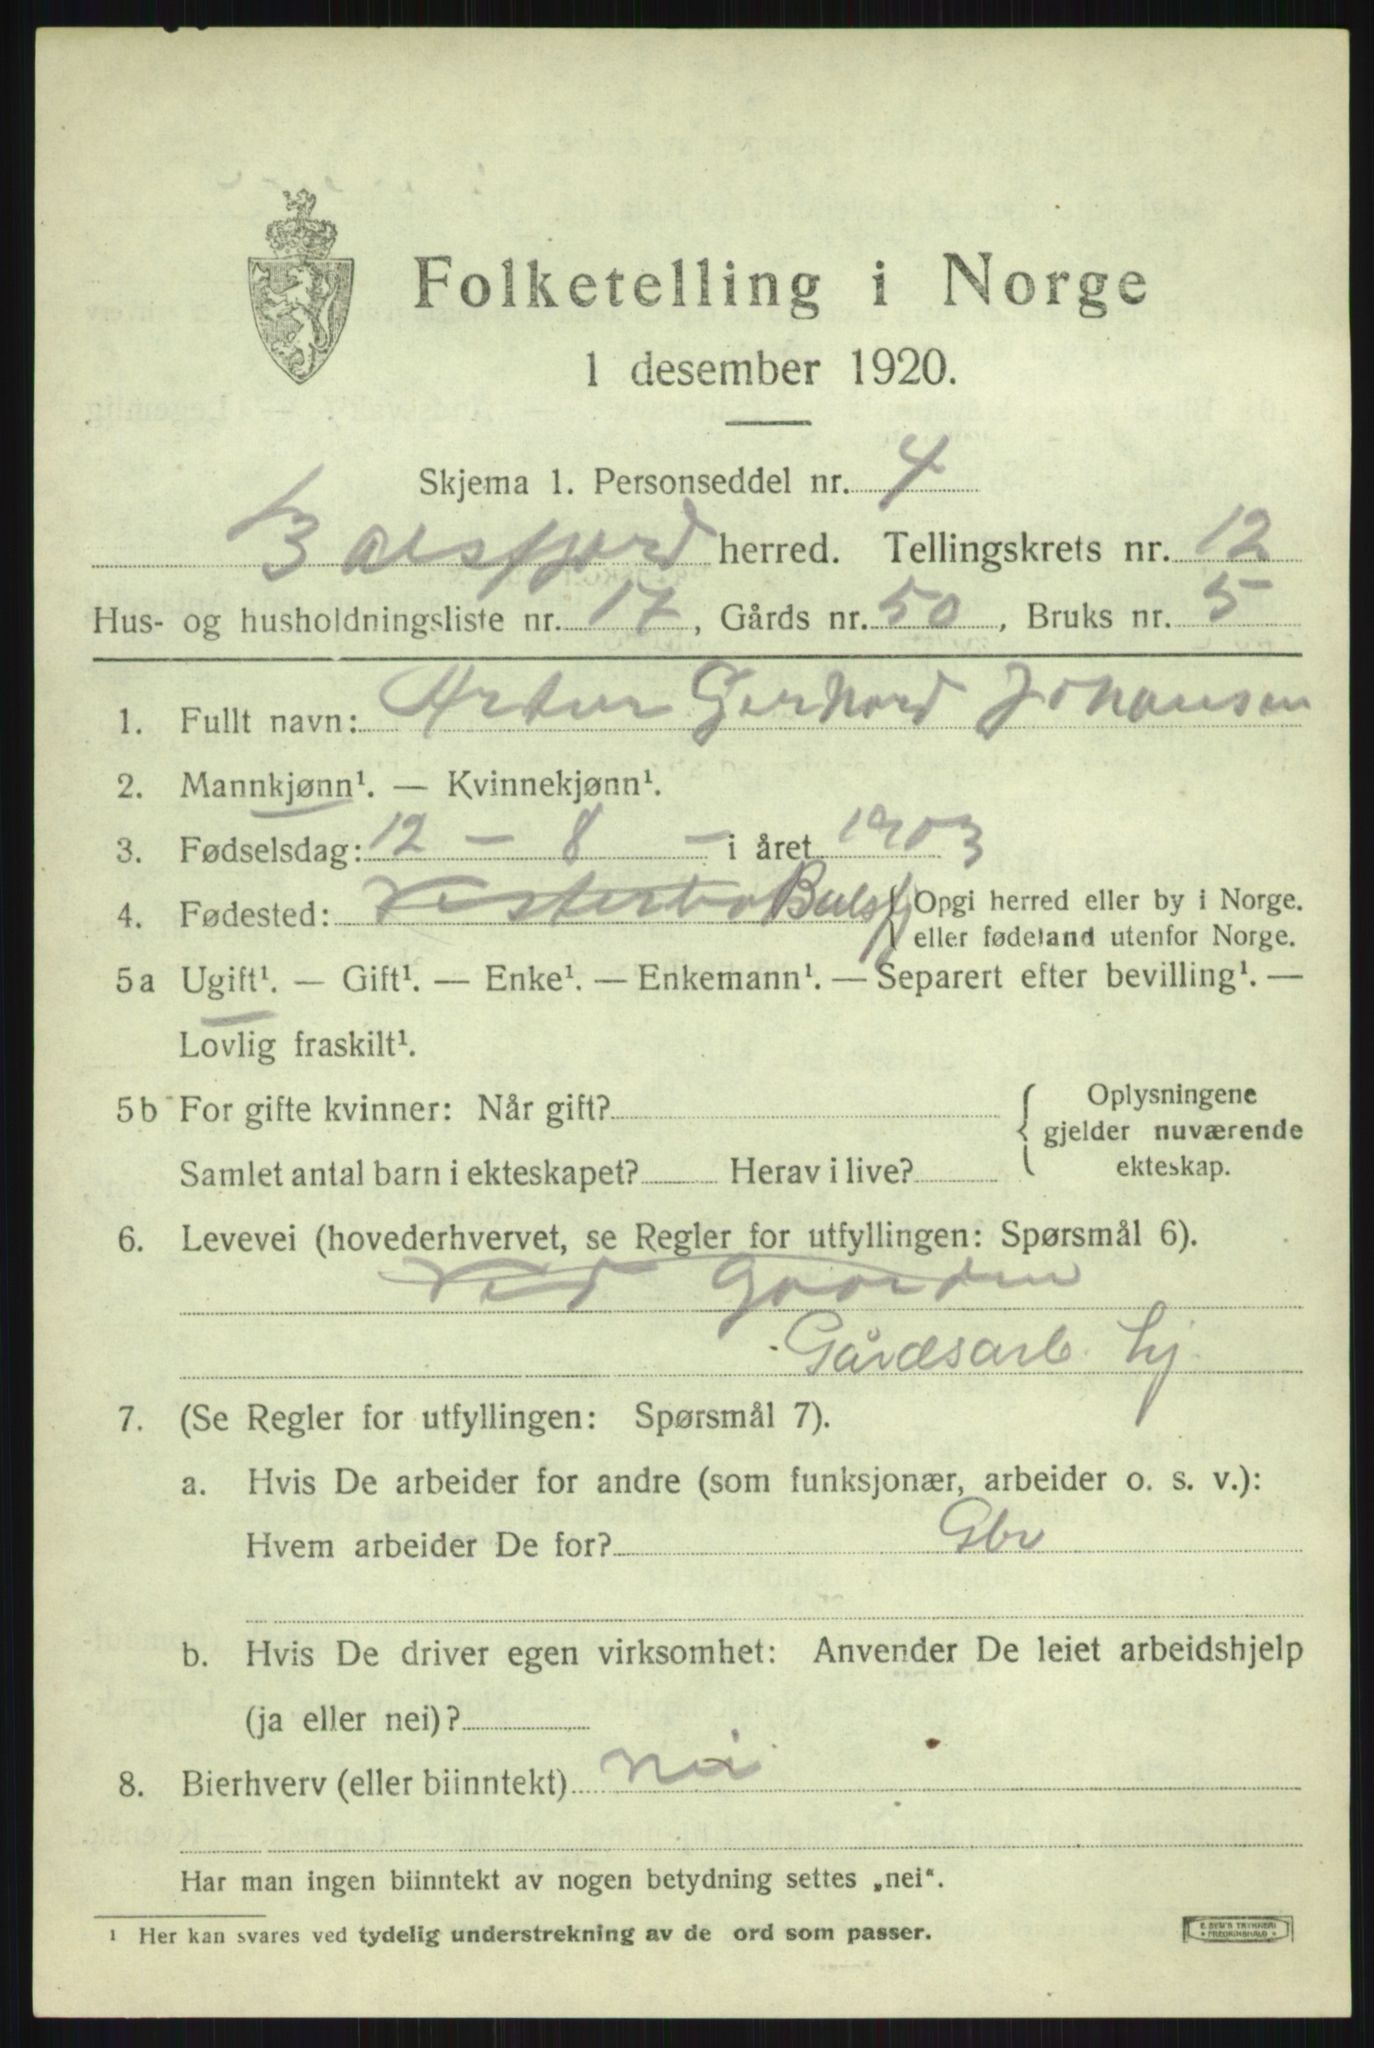 Folketelling i Norge
1 desember 1920.
Skjema 1. Personseddel nr. 4
Balsfjord herred. Tellingskrets nr. 12
Hus- og husholdningsliste nr. 17, Gårds nr. 50, Bruks nr. 5
1. Fullt navn: Artur Gerhard Johansen
2. Mannkjønn¹. — Kvinnekjønn¹.
3. Fødselsdag: 12 - 8 - i året 1903
4. Fødested: Vesterbo Balsfj { Opgi herred eller by i Norge.
eller fødeland utenfor Norge.
5a Ugift¹. — Gift¹. — Enke¹. — Enkemann¹. — Separert efter bevilling¹. —
Lovlig fraskilt¹.
5b For gifte kvinner: Når gift? { Oplysningene
gjelder nuværende
Samlet antal barn i ekteskapet? Herav i live? ekteskap.
6. Levevei (hovederhvervet, se Regler for utfyllingen: Spørsmål 6).
Ved Gaarden
Gårdsarb. hj
7. (Se Regler for utfyllingen: Spørsmål 7).
a. Hvis De arbeider for andre (som funksjonær, arbeider o. s. v.):
Hvem arbeider De for? Gbr
b. Hvis De driver egen virksomhet: Anvender De leiet arbeidshjelp
(ja eller nei)?
8. Bierhverv (eller biinntekt) nei
Har man ingen biinntekt av nogen betydning settes „nei“.
¹ Her kan svares ved tydelig understrekning av de ord som passer.
E. SEM'S TRYKKERI
* FREDRIKSHALD *